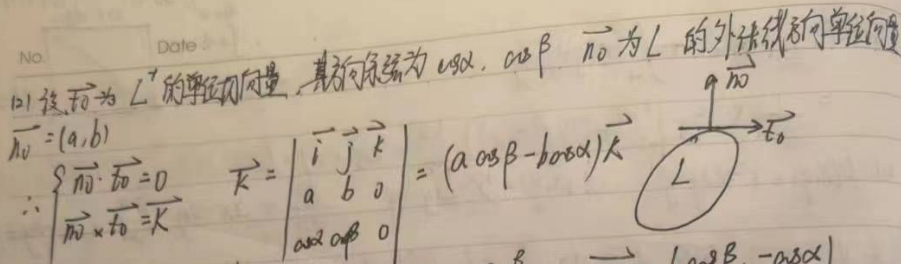 No.
Date
(2) 设 t₀⃗ 为 L⁺ 的单位切向量, 其方向余弦为 cosα, cosβ n₀⃗ 为 L 的外法线方向单位向量
n₀⃗ = (a, b)
∴ { n₀⃗ · t₀⃗ = 0
n₀⃗ × t₀⃗ = k⃗
k⃗ = | i⃗ j⃗ k⃗
a b 0
cosα cosβ 0 | = (a cosβ - b cosα) k⃗
n₀⃗
t₀⃗
L
(cosβ, -cosα)